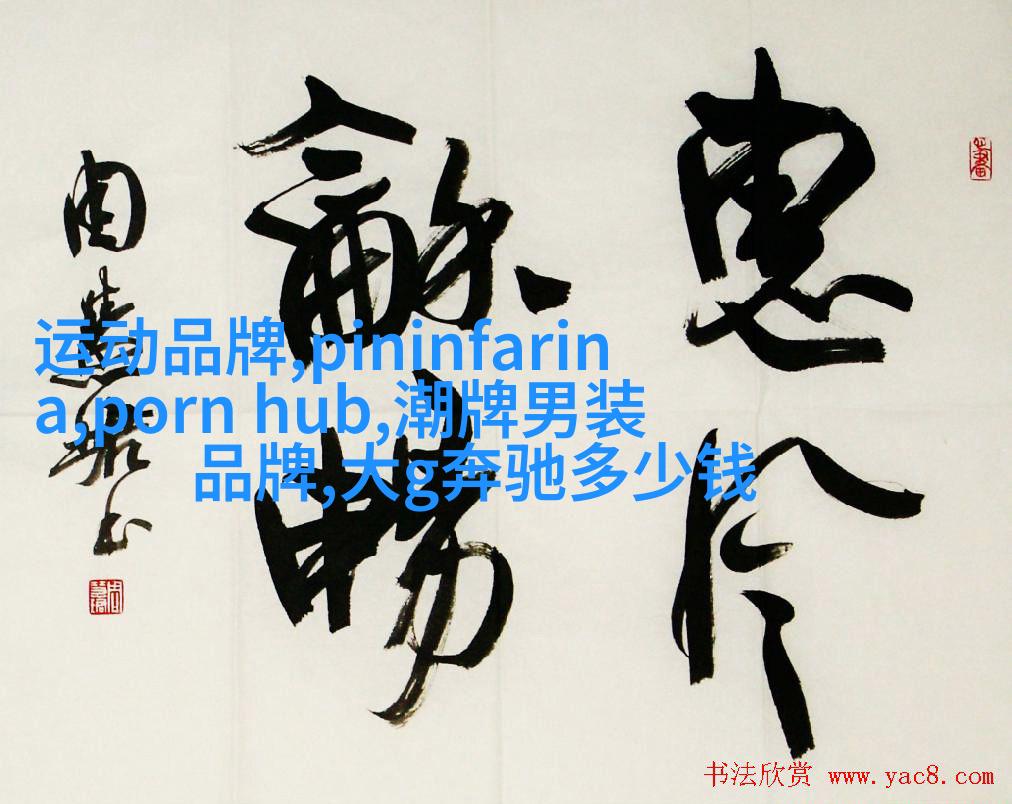 惠风
龢暢
周慧珺书
运动品牌,pininfarin
a,porn hub,潮牌男装
品牌,大g奔驰多少钱
书法欣赏 www.yac8.com